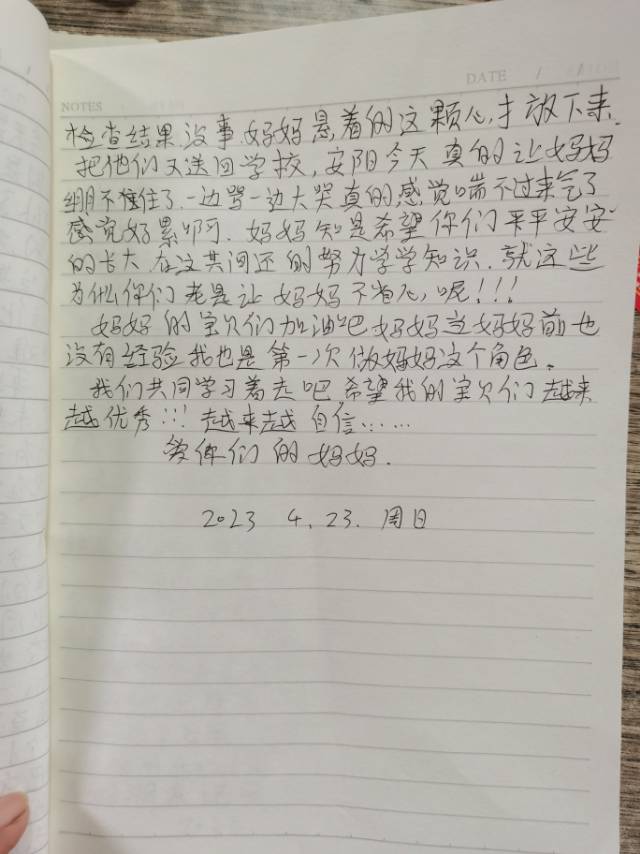 NOTES
DATE / /
检查结果没事妈妈悬着的这颗心才放下来.
把他们又送回学校,安阳今天真的让妈妈
绷不住住了一边骂一边大哭真的感觉喘不过来气了
感觉好累啊.妈妈知是希望你们平平安安
的长大在这其间还的努力学学知识.就这些
为什么你们老是让妈妈不省心呢!!!
妈妈的宝贝们加油吧妈妈当妈妈前也
没有经验我也是第一次做妈妈这个角色。
我们共同学习着去吧希望我的宝贝们越来
越优秀!!!越来越自信……
你们的妈妈.
2023 4.23.周日